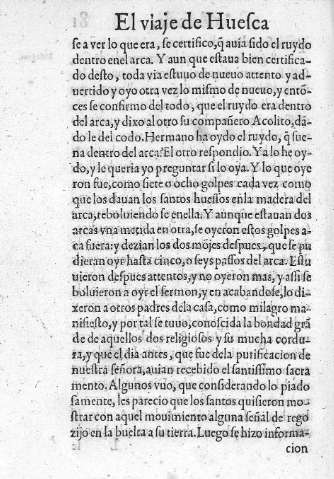 El viaje de Huesca
se a ver lo que era, se certifico, q̃ auia sido el ruydo
dentro enel arca. Y aun que estaua bien certifica-
do desto, toda via estuuo de nueuo attento y ad-
uertido y oyo otra vez lo mismo de nueuo, y entõ-
ces se confirmo del todo, que el ruydo era dentro
del arca, y dixo al otro su compañero Acolito, dã-
do le del codo. Hermano ha oydo el ruydo, q̃ sue-
na dentro del arca? El otro respondio. Ya lo he oy-
do, y le queria yo preguntar si lo oya. Y lo que oye
ron fue, como siete o ocho golpes cada vez como
que los dauan los santos huessos enla madera del
arca, reboluiendo se enella. Y aunque estauan dos
arcas vna metida en otra, se oyeron estos golpes a-
ca fuera: y dezian los dos mõjes despues, que se pu
dieran oyr hasta cinco, o seys passos del arca. Estu
uieron despues attentos, y no oyeron mas, y assi se
boluieron a oyr el sermon, y en acabandose, lo di-
xeron a otros padres dela casa, como milagro ma-
nifiesto, y por tal se tuuo, conoscida la bondad grã
de de aquellos dos religiosos y su mucha cordu-
ra, y que el dia antes, que fue dela purificacion de
nuestra señora, auian recebido el santissimo sacra
mento. Algunos vuo, que considerando lo piado
samente, les parecio que los santos quisieron mo-
strar con aquel mouimiento alguna señal de rego
zijo en la buelta a su tierra. Luego se hizo informa-
cion